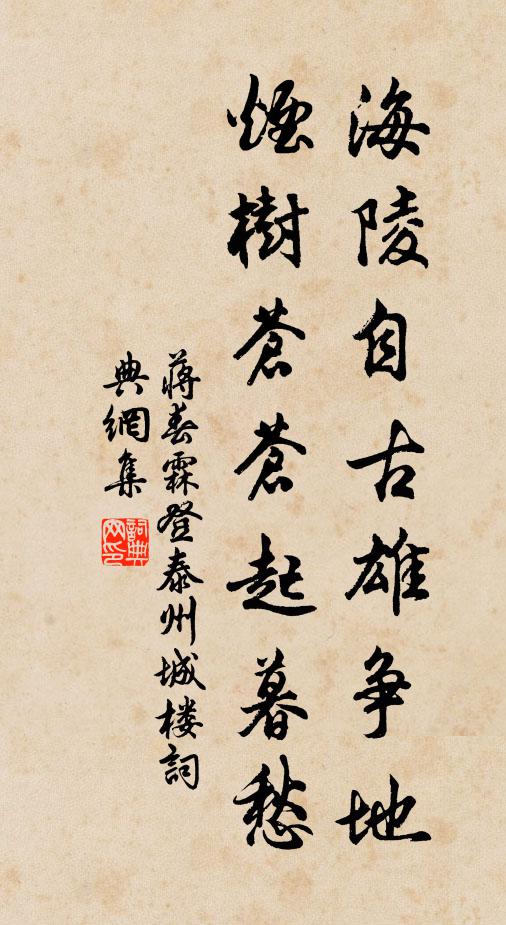 海陵自古雄争地
煙樹蒼蒼起暮愁
蔣春霖登泰州城楼詞
典網集
詞典網印